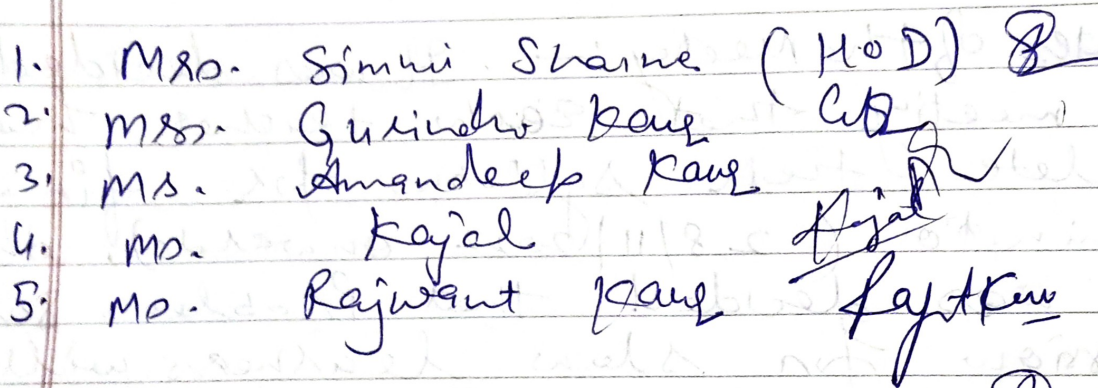 1. Mrs. Simmi Sharma (HOD)
2. Mrs. Gurinder Kaur
3. Ms. Amandeep Kaur
4. Ms. Kajal Kajal
5. Ms. Rajwant Kaur